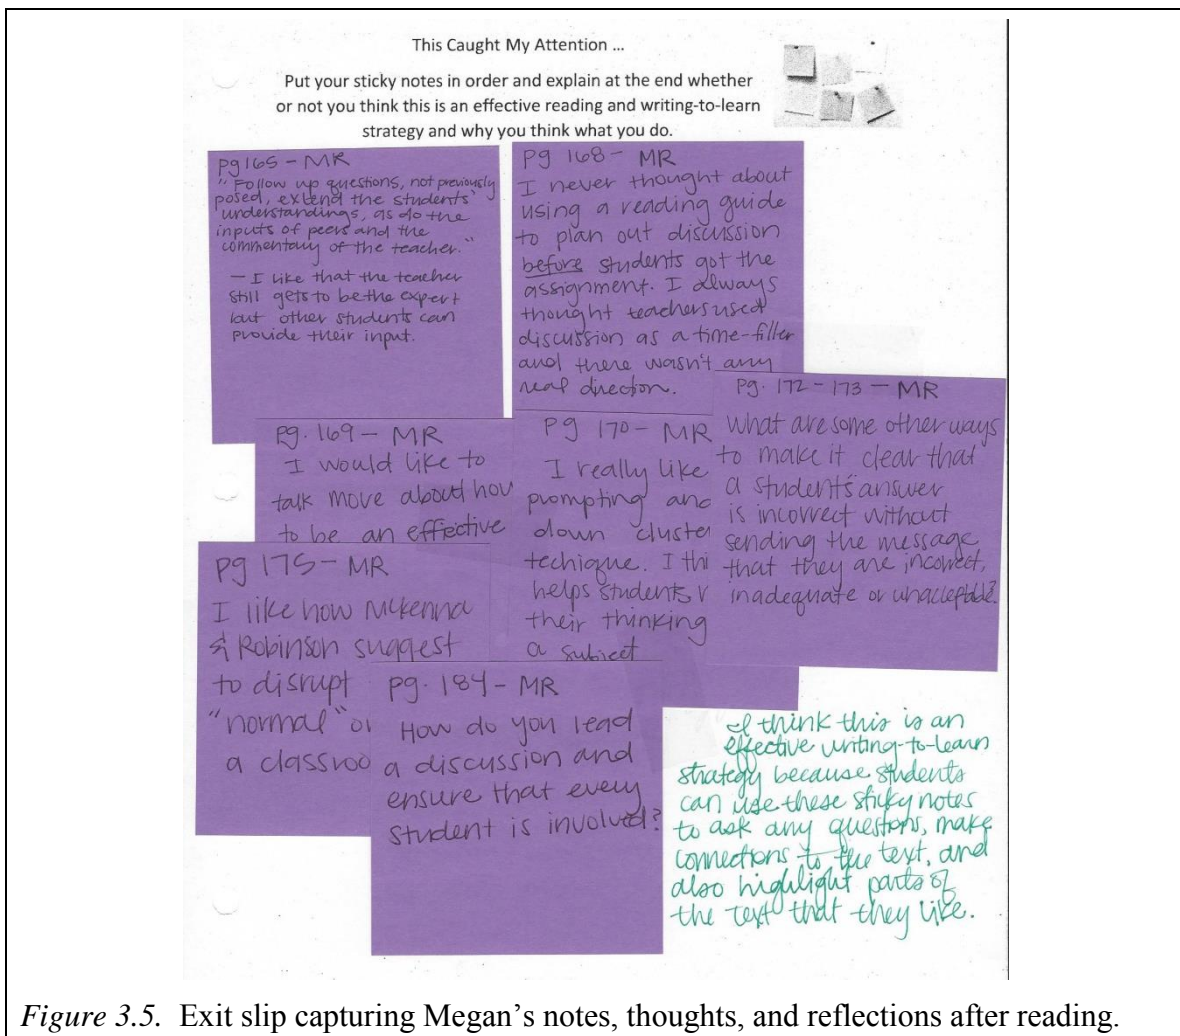 This Caught My Attention ...
Put your sticky notes in order and explain at the end whether
or not you think this is an effective reading and writing-to-learn
strategy and why you think what you do.
pg 165 - MR
"Follow up questions, not previously
posed, extend the students'
understandings, as do the
inputs of peers and the
commentary of the teacher."
- I like that the teacher
still gets to be the expert
but other students can
provide their input.
pg 168 - MR
I never thought about
using a reading guide
to plan out discussion
before students got the
assignment. I always
thought teachers used
discussion as a time-filler
and there wasn't any
real direction.
pg. 169 - MR
I would like to
talk more about how
to be an effective
pg 170 - MR
I really like
prompting and
down cluste
techique. I thi
helps students
their thinking
a subject
pg. 172 - 173 - MR
What are some other ways
to make it clear that
a students' answer
is incorrect without
sending the message
that they are incorrect,
inadequate or unacceptable?
pg 175 - MR
I like how McKenna
& Robinson suggest
to disrupt
"normal" or
a classroo
pg. 184 - MR
How do you lead
a discussion and
ensure that every
student is involved?
I think this is an
effective writing-to-learn
strategy because students
can use these sticky notes
to ask any questions, make
connections to the text, and
also highlight parts of
the text that they like.
Figure 3.5. Exit slip capturing Megan's notes, thoughts, and reflections after reading.